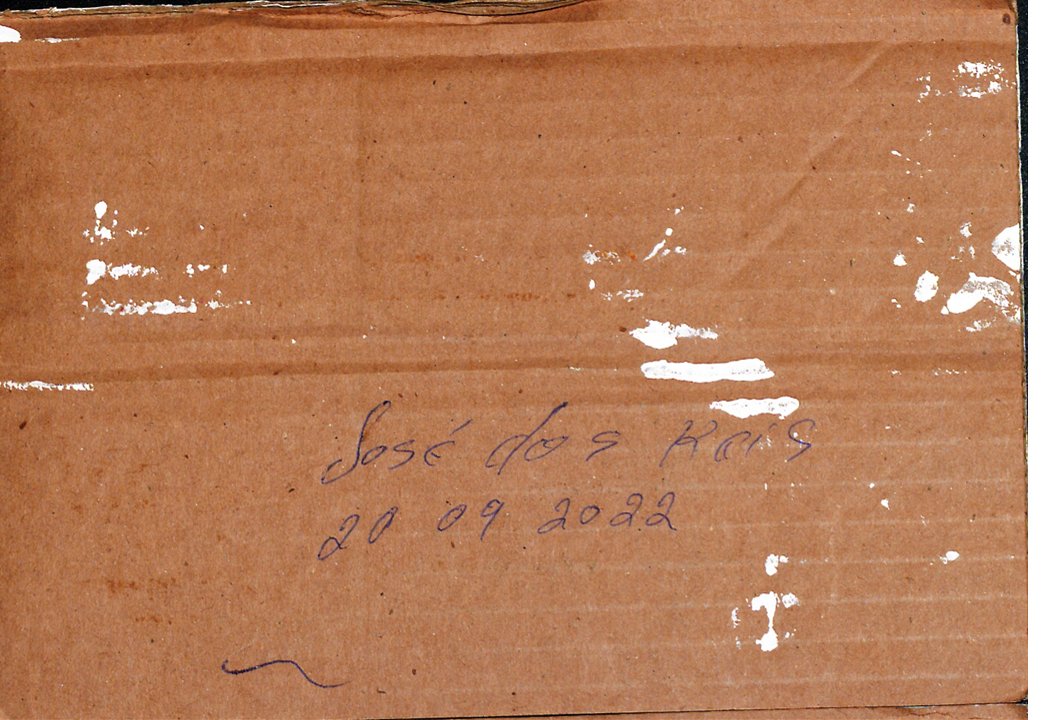 José dos Reis
20 09 2022